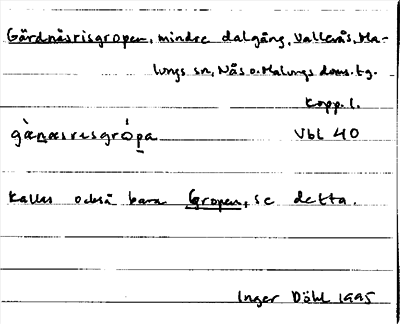 Gärdnåsrisgropen, mindre dalgång, Vallerås, Ma-
lungs sn, Nås o. Malungs doms. tg.
Kopp. l.
gànæsrɩsgrópa Vbl 40
Kallas också bara Gropen, se detta.
Inger Döhl 1995